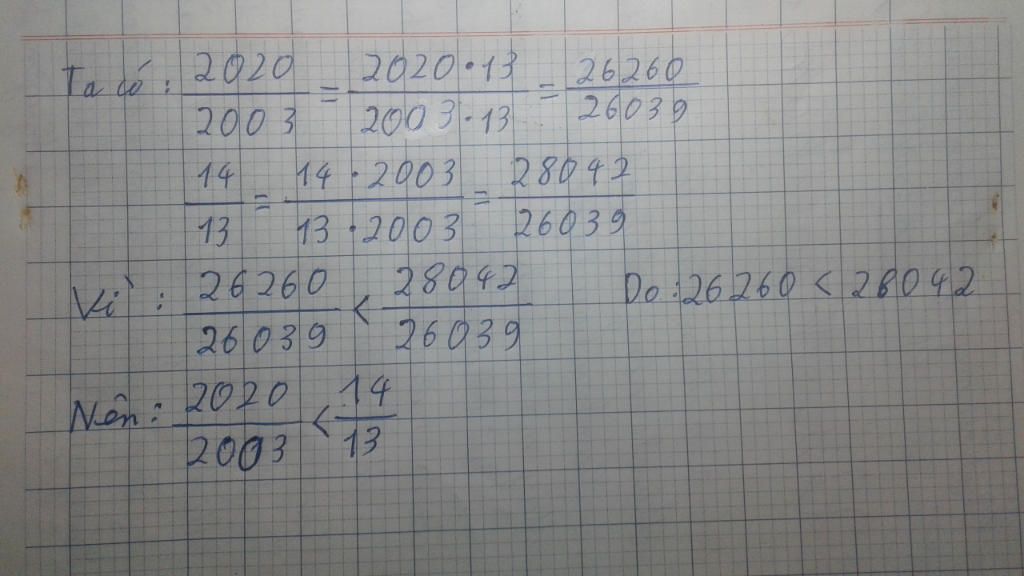 Ta có: 2020/2003 = 2020·13/2003·13 = 26260/26039
14/13 = 14·2003/13·2003 = 28042/26039
Vì: 26260/26039 < 28042/26039 Do: 26260 < 28042
Nên: 2020/2003 < 14/13